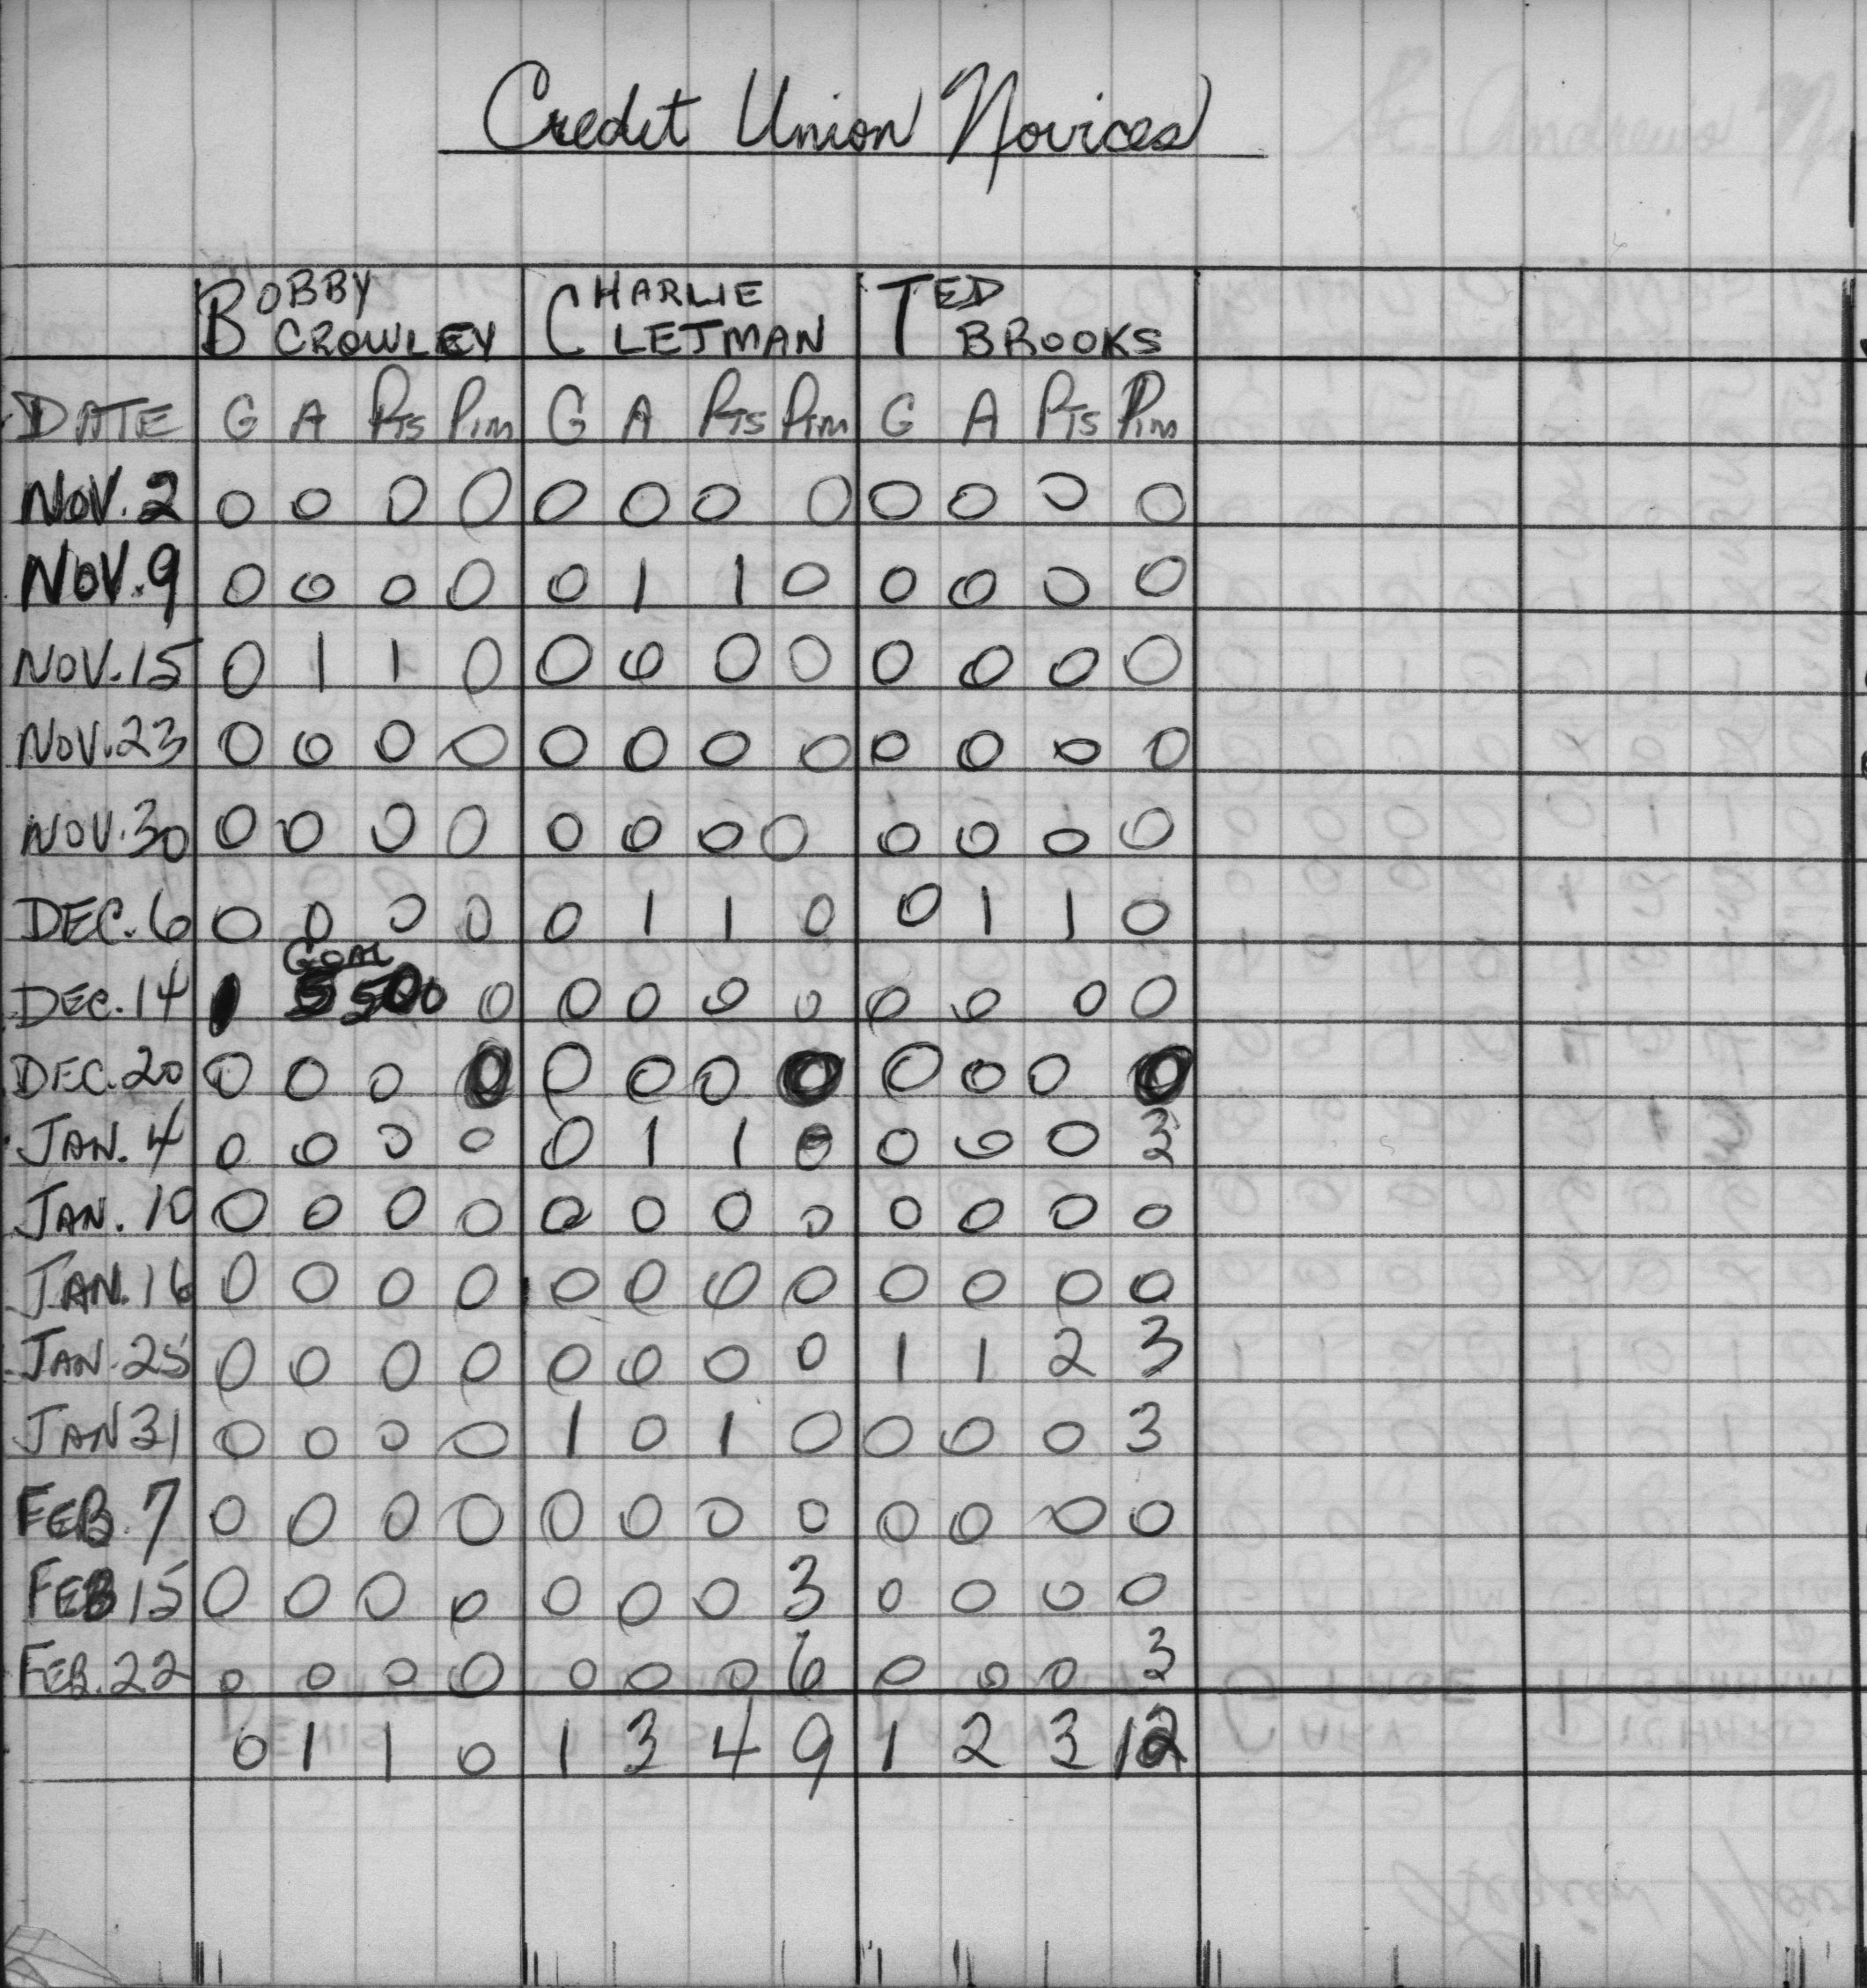 Credit Union Novices
BOBBY CROWLEY CHARLIE CLETMAN TED BROOKS
DATE G A PTS Pim G A PTS Pim G A PTS Pim
NOV. 2 0 0 0 0 0 0 0 0 0 0 0 0
NOV. 9 0 0 0 0 0 1 1 0 0 0 0 0
NOV. 15 0 1 1 0 0 0 0 0 0 0 0 0
NOV. 23 0 0 0 0 0 0 0 0 0 0 0 0
NOV. 30 0 0 0 0 0 0 0 0 0 0 0 0
DEC. 6 0 0 0 0 0 1 1 0 0 1 1 0
DEC. 14 0 0 0 0 0 0 0 0 0
DEC. 20 0 0 0 0 0 0 0 0 0 0 0 0
JAN. 4 0 0 0 0 0 1 1 0 0 0 0 3
JAN. 10 0 0 0 0 0 0 0 0 0 0 0 0
JAN. 16 0 0 0 0 0 0 0 0 0 0 0 0
JAN. 25 0 0 0 0 0 0 0 0 1 1 2 3
JAN 31 0 0 0 0 1 0 1 0 0 0 0 3
FEB. 7 0 0 0 0 0 0 0 0 0 0 0 0
FEB 15 0 0 0 0 0 0 0 3 0 0 0 0
FEB. 22 0 0 0 0 0 0 0 6 0 0 0 3
0 1 1 0 1 3 4 9 1 2 3 12